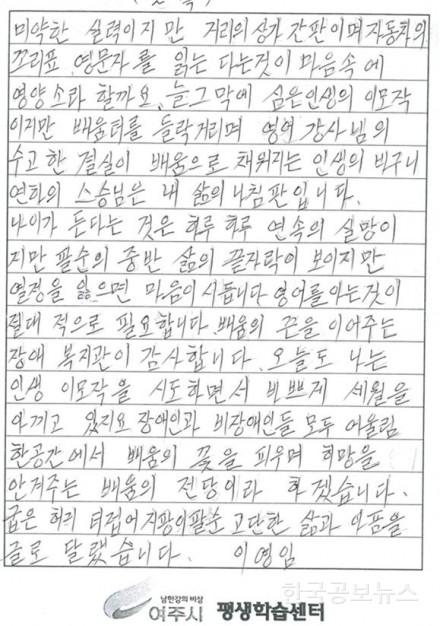 미약한 실력이지만 거리의 상가 간판이며 자동차의
꼬리표 영문자를 읽는 다는것이 마음속에
영양소라 할까요. 늘그막에 심은인생의 이모작
이지만 배움터를 들락거리며 영어 강사님의
수고한 결실이 배움으로 채워지는 인생의 바구니
연하의 스승님은 내 삶의 나침판입니다.
나이가 든다는 것은 하루 하루 연속의 실망이
지만 팔순의 중반 삶의 끝자락이 보이지만
열정을 잃으면 마음이 시듭니다 영어를 아는것이
절대 적으로 필요합니다. 배움의 끈을 이어주는
장애 복지관이 감사합니다. 오늘도 나는
인생 이모작을 시도하면서 바쁘게 세월을
아끼고 있지요 장애인과 비장애인들 모두 어울림
한공간에서 배움의 꽃을 피우며 희망을
안겨주는 배움의 전당이라 하겠습니다.
굽은 허리 지팡이 팔순 고단한 삶과 아픔을
글로 달랬습니다. 이영임
남한강의 비상
여주시 평생학습센터
한국공보뉴스